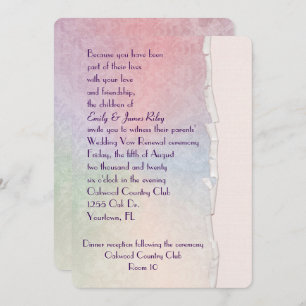 Because you have been
part of their lives
with your love
and friendship,
the children of
Emily & James Riley
invite you to witness their parents'
Wedding Vow Renewal ceremony
Friday, the fifth of August
two thousand and twenty
six o'clock in the evening
Oakwood Country Club
1255 Oak Dr.
Yourtown, FL
Dinner reception following the ceremony
Oakwood Country Club
Room 10